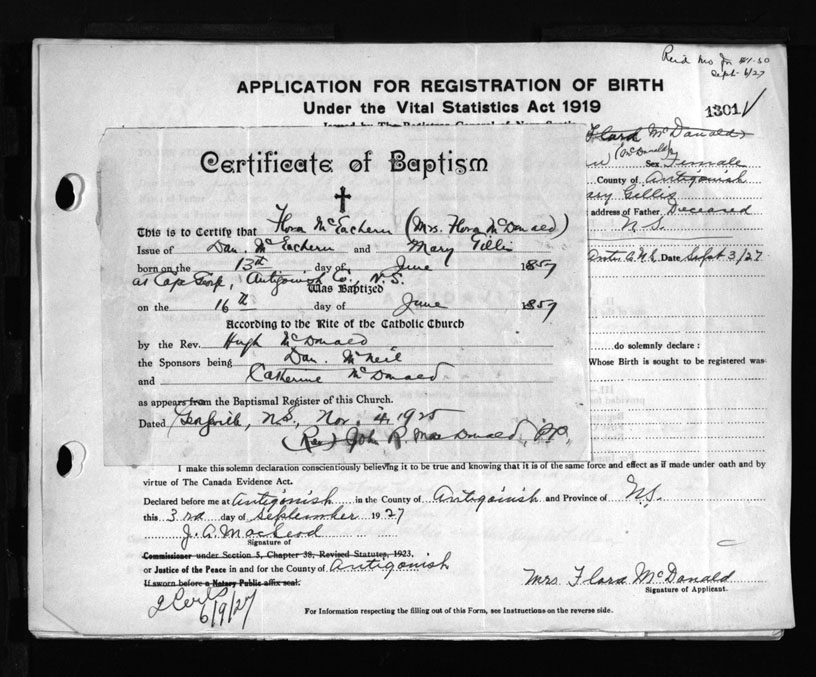 Sept 6/27
APPLICATION FOR REGISTRATION OF BIRTH
Under the Vital Statistics Act 1919
1301
Flora McDonald
(McDonald)
Sex Female
County of Antigonish
address of Father Deceased
N S
Date Sept 3/27
Certificate of Baptism
This is to Certify that Flora McEachern (Mrs. Flora McDonald)
Issue of Dan. McEachern and Mary Gillis
born on the 13th day of June 1857
at Cape George, Antigonish Co., N.S.
Was Baptized
on the 16th day of June 1857
According to the Rite of the Catholic Church
by the Rev. Hugh McDonald
the Sponsors being Dan. McNeil
and Catherine McDonald
as appears from the Baptismal Register of this Church.
Dated Georgeville, N.S., Nov. 4, 1925
(Rev) John R. MacDonald, P.P.
do solemnly declare :
Whose Birth is sought to be registered was
I make this solemn declaration conscientiously believing it to be true and knowing that it is of the same force and effect as if made under oath and by
virtue of The Canada Evidence Act.
Declared before me at Antigonish in the County of Antigonish and Province of N.S.
this 3rd day of September 1927
J. A. MacLeod
Signature of
Commissioner under Section 5, Chapter 38, Revised Statutes, 1923.
or Justice of the Peace in and for the County of Antigonish
If sworn before a Notary Public affix seal.
Mrs Flora McDonald
Signature of Applicant.
6/9/27
For Information respecting the filling out of this Form, see Instructions on the reverse side.